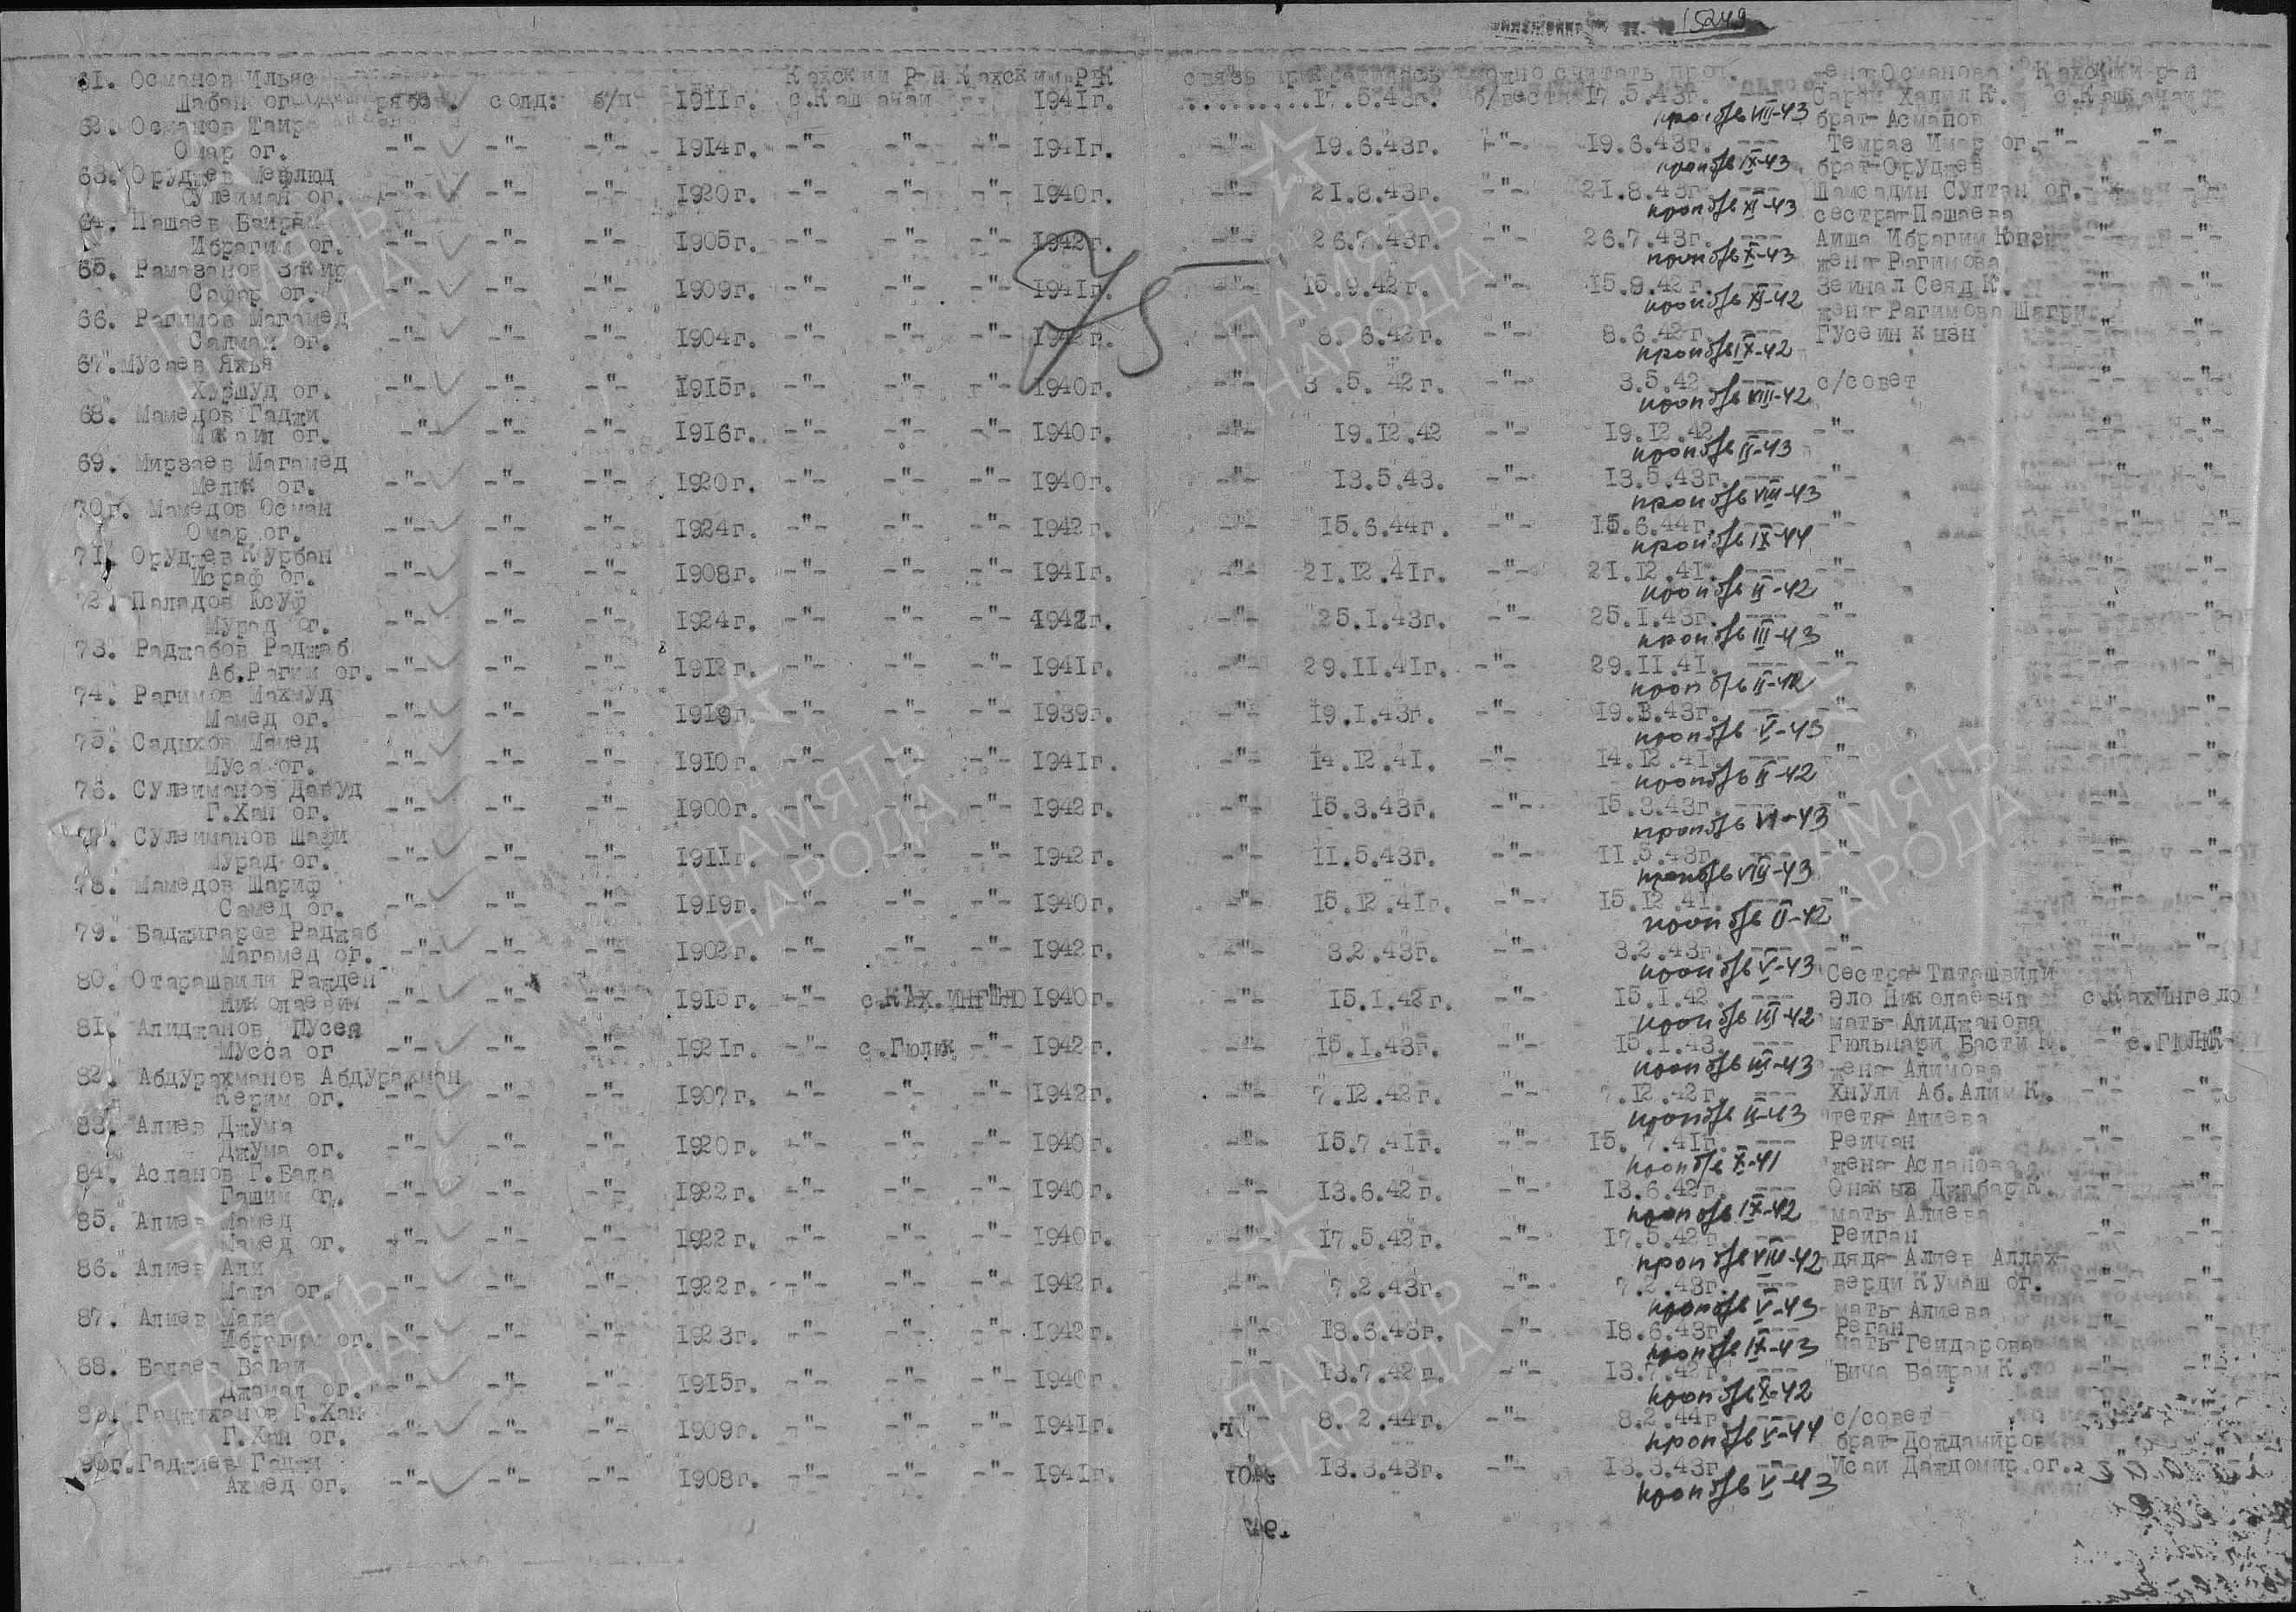 15249
61. Османов Ильяс Кахский р-н Кахским РВК связь прекратилась можно считать проп. жена-Османова Кахский р-н
Шабан ог. рябо. солд: б/п 1911г. с.Кашкачай 1941г. ..........17.5.43г. б/вести 17.5.43г. Сарай Халил К. с.Кашкачай
проп б/в VIII-43
62. Османов Таир брат-Асманов
Омар ог. -"- -"- -"- 1914г. -"- -"- -"- 1941г. -"- 19.6.43г. -"- 19.6.43г. --- Темраз Имар ог. -"- -"-
проп б/в IX-43
63. Оруджев Мефлюд брат-Оруджев
Сулейман ог. -"- -"- -"- 1920г. -"- -"- -"- 1940г. -"- 21.8.43г. -"- 21.8.43г. --- Шамсадин Султан ог. -"- -"-
проп б/в XI-43
64. Пашаев Байрам сестра-Пашаева
Ибрагим ог. -"- -"- -"- 1905г. -"- -"- -"- 1942г. -"- 26.7.43г. -"- 26.7.43г. --- Аиша Ибрагим Кызы -"- -"-
проп б/в X-43
75
65. Рамазанов Закир жена-Рагимова
Сафар ог. -"- -"- -"- 1909г. -"- -"- -"- 1941г. -"- 15.9.42г. -"- 15.9.42г. --- Зейнал Сеяд К. -"- -"-
проп б/в XI-42
66. Рагимов Магамед жена-Рагимова Шагри
Салман ог. -"- -"- -"- 1904г. -"- -"- -"- 1942г. -"- 8.6.42г. -"- 8.6.42г. --- Гусеин кызы -"- -"-
проп б/в IX-42
67. Мусаев Яхья
Хуршуд ог. -"- -"- -"- 1915г. -"- -"- -"- 1940г. -"- 3.5.42г. -"- 3.5.42 --- с/совет -"- -"-
проп б/в VIII-42
68. Мамедов Гаджи
Микаил ог. -"- -"- -"- 1916г. -"- -"- -"- 1940г. -"- 19.12.42 -"- 19.12.42 --- -"- -"- -"-
проп б/в II-43
69. Мирзаев Магамед
Мелик ог. -"- -"- -"- 1920г. -"- -"- -"- 1940г. -"- 13.5.43. -"- 13.5.43г. --- -"- -"- -"-
проп б/в VIII-43
70г. Мамедов Осман
Омар ог. -"- -"- -"- 1924г. -"- -"- -"- 1942г. -"- 15.6.44г. -"- 15.6.44г. --- -"- -"- -"-
проп б/в IX-44
71. Оруджев Курбан
Исраф ог. -"- -"- -"- 1908г. -"- -"- -"- 1941г. -"- 21.12.41г. -"- 21.12.41. --- -"- -"- -"-
проп б/в II-42
72. Паладов Юсуф
Мурад ог. -"- -"- -"- 1924г. -"- -"- -"- 1942г. -"- 25.1.43г. -"- 25.1.43г. --- -"- -"- -"-
проп б/в III-43
73. Раджабов Раджаб
Аб.Рагим ог. -"- -"- -"- 1913г. -"- -"- -"- 1941г. -"- 29.11.41г. -"- 29.11.41. --- -"- -"- -"-
проп б/в II-42
74. Рагимов Махмуд
Мамед ог. -"- -"- -"- 1919г. -"- -"- -"- 1939г. -"- 19.1.43г. -"- 19.3.43г. --- -"- -"- -"-
проп б/в V-43
75. Садыхов Мамед
Муса ог. -"- -"- -"- 1910г. -"- -"- -"- 1941г. -"- 14.12.41. -"- 14.12.41. --- -"- -"- -"-
проп б/в II-42
76. Сулейманов Давуд
Г.Хан ог. -"- -"- -"- 1900г. -"- -"- -"- 1942г. -"- 15.3.43г. -"- 15.3.43г. --- -"- -"- -"-
проп б/в VI-43
77. Сулейманов Шафи
Мурад ог. -"- -"- -"- 1911г. -"- -"- -"- 1942г. -"- 11.5.43г. -"- 11.5.43г. --- -"- -"- -"-
проп б/в VIII-43
78. Мамедов Шариф
Самед ог. -"- -"- -"- 1919г. -"- -"- -"- 1940г. -"- 15.12.41г. -"- 15.12.41. --- -"- -"- -"-
проп б/в II-42
79. Баджигаров Раджаб
Магамед ог. -"- -"- -"- 1902г. -"- -"- -"- 1942г. -"- 3.2.43г. -"- 3.2.43г. --- -"- -"- -"-
проп б/в V-43
80. Отарашвили Ражден Сестра-Титашвили
Николаевич -"- -"- -"- 1915г. -"- с.КАХ. 1940г. -"- 15.1.42г. -"- 15.1.42. --- Эло Николаевна с.КахИнгело
проп б/в III-42
81. Алиджанов Гусея мать-Алиджанова
Мусса ог -"- -"- -"- 1921г. -"- с.Гюлюк -"- 1942г. -"- 15.1.43г. -"- 15.1.43. --- Гюльпари Басти К. -"- с.Гюлюк
проп б/в III-43
82. Абдурахманов Абдурахман жена-Алимова
Керим ог. -"- -"- -"- 1907г. -"- -"- -"- 1942г. -"- 7.12.42г. -"- 7.12.42г. --- Хнули Аб.Алим К. -"- -"-
проп б/в II-43
83. Алиев Джума тетя-Алиева
Джума ог. -"- -"- -"- 1920г. -"- -"- -"- 1940г. -"- 15.7.41г. -"- 15.7.41г. --- Рейчан -"- -"-
проп б/в X-41
84. Асланов Г.Бала жена-Асланова
Гашим ог. -"- -"- -"- 1922г. -"- -"- -"- 1940г. -"- 13.6.42г. -"- 13.6.42г. --- Джабар К. -"- -"-
проп б/в IX-42
85. Алиев Мамед мать-Алиева
Мамед ог. -"- -"- -"- 1922г. -"- -"- -"- 1940г. -"- 17.5.42г. -"- 17.5.42г. --- Рейган -"- -"-
проп б/в VIII-42
86. Алиев Али дядя-Алиев Аллах-
Мала ог. -"- -"- -"- 1922г. -"- -"- -"- 1942г. -"- 7.2.43г. -"- 7.2.43г. --- верди Кумаш ог. -"- -"-
проп б/в V-43
87. Алиев Мала мать-Алиева
Ибрагим ог. -"- -"- -"- 1923г. -"- -"- -"- 1942г. -"- 18.6.43г. -"- 18.6.43г. --- Реган -"- -"-
проп б/в IX-43
88. Балаев Балаи мать-Гейдарова
Джамал ог. -"- -"- -"- 1915г. -"- -"- -"- 1940г. -"- 13.7.42г. -"- 13.7.42г. --- Бича Байрам К. -"- -"-
проп б/в X-42
89. Гаджиханов Г.Хан
Г.Хан ог. -"- -"- -"- 1909г. -"- -"- -"- 1941г. -"- 8.2.44г. -"- 8.2.44г. --- с/совет
проп б/в V-44
90г. Гаджиев Гаджи брат-Дождамиров
Ахмед ог. -"- -"- -"- 1908г. -"- -"- -"- 1941г. 13.3.43г. -"- 13.3.43г. --- Исаи Даждомир.ог.
проп б/в V-43
ПАМЯТЬ НАРОДА
ПАМЯТЬ НАРОДА
ПАМЯТЬ НАРОДА
ПАМЯТЬ НАРОДА
ПАМЯТЬ НАРОДА
ПАМЯТЬ НАРОДА